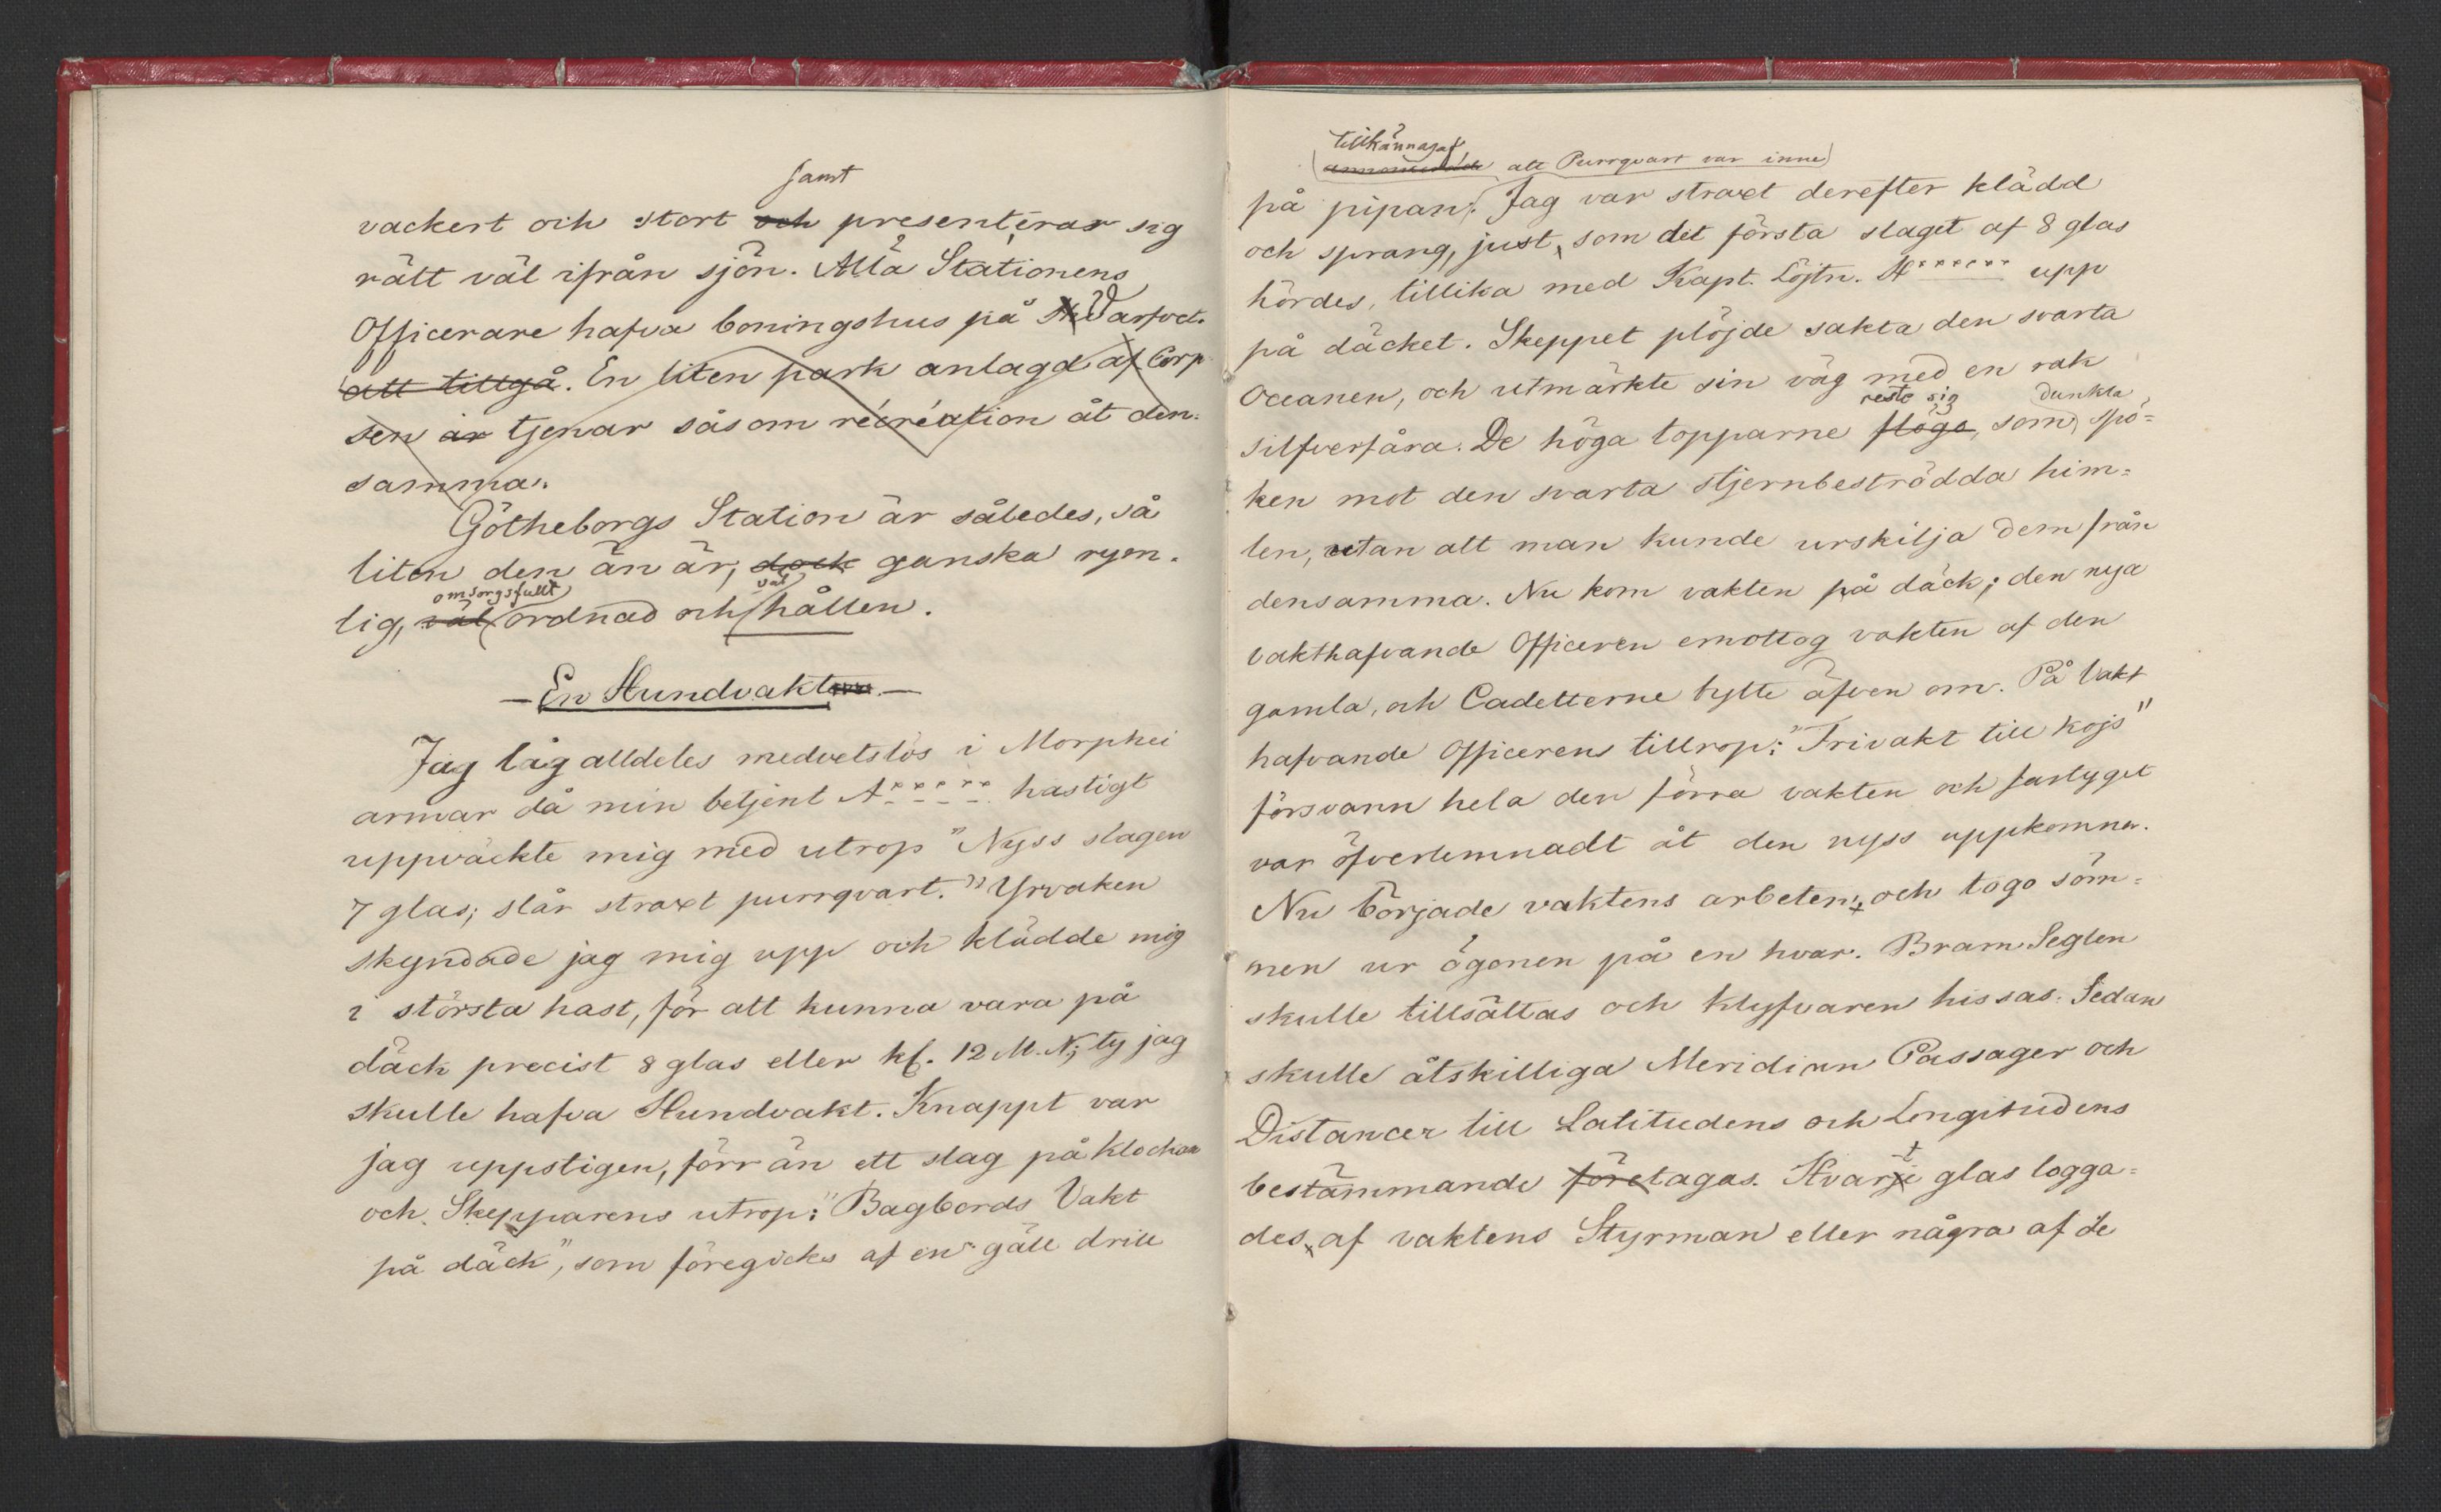 samt
vackert och stort och presenterar sig
rätt väl ifrån sjön. Alla Stationens
Officerare hafva boningshus på Varfvet.
att tillgå. En liten park anlagd af Corp
sen är tjenar såsom récréation åt den-
samma.
Götheborgs Station är således, så
liten den än är, dock ganska ryen-
omsorgsfullt väl
lig, väl ordnad och hållen.
— En Hundvakt —
Jag låg alldeles medvetslös i Morphei
armar då min betjent A****** hastigt
uppväckte mig med utrop "Nyss slagen
7 glas; slår straxt purrqvart." Yrvaken
skyndade jag mig upp och klädde mig
i största hast, för att kunna vara på
däck precist 8 glas eller kl. 12 M.N; ty jag
skulle hafva Hundvakt. Knappt var
jag uppstigen, förr än ett slag på klockan
och Skepparens utrop: "Bagbords Vakt
på däck", som föregicks af en gäll drill
tillkännagaf
annonserade att Purrqvart var inne
på pipan. Jag var straxt derefter klädd
och sprang, just som det första slaget af 8 glas
hördes, tillika med Kapt. Löjtn. H****** upp
på däcket. Skeppet plöjde sakta den svarta
Oceanen, och utmärkte sin väg med en rak
reste sig dunkla
silfverfåra. De höga topparne flöga, som spö-
ken mot den svarta stjernbeströdda him-
len, utan att man kunde urskilja dem från
densamma. Nu kom vakten på däck; den nya
vakthafvande Officeren emottog vakten af den
gamla, och Cadetterne bytte äfven om. På Vakt
hafvande Officerens tillrop: "Frivakt till kojs"
försvann hela den förra vakten och fartyget
var öfverlemnadt åt den nyss uppkomna.
Nu började vaktens arbeten, och togo söm-
nen ur ögonen på en hvar. Bram Seglen
skulle tillsättas och klyfvaren hissas. Sedan
skulle åtskilliga Meridian Passager och
Distancer till Latitudens och Longitudens
t
bestämmande företagas. Hvarje glas logga-
des, af vaktens Styrman eller några af de